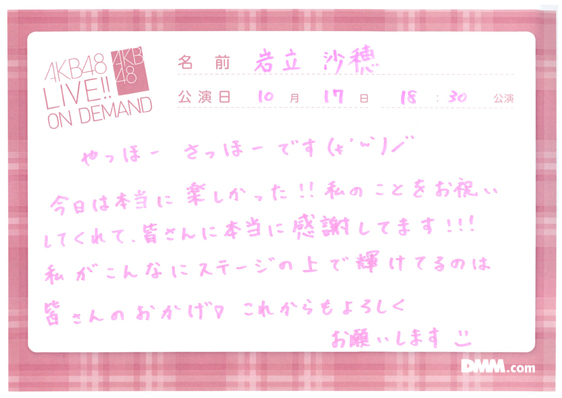 AKB48
LIVE!!
ON DEMAND
AKB
48
名 前 岩立 沙穂
公演日 10 月 17 日 18 : 30 公演
やっほー さっほーです
今日は本当に楽しかった!! 私のことをお祝い
してくれて、皆さんに本当に感謝してます!!!
私がこんなにステージの上で輝けてるのは
皆さんのおかげ♡ これからもよろしく
お願いします
DMM.com